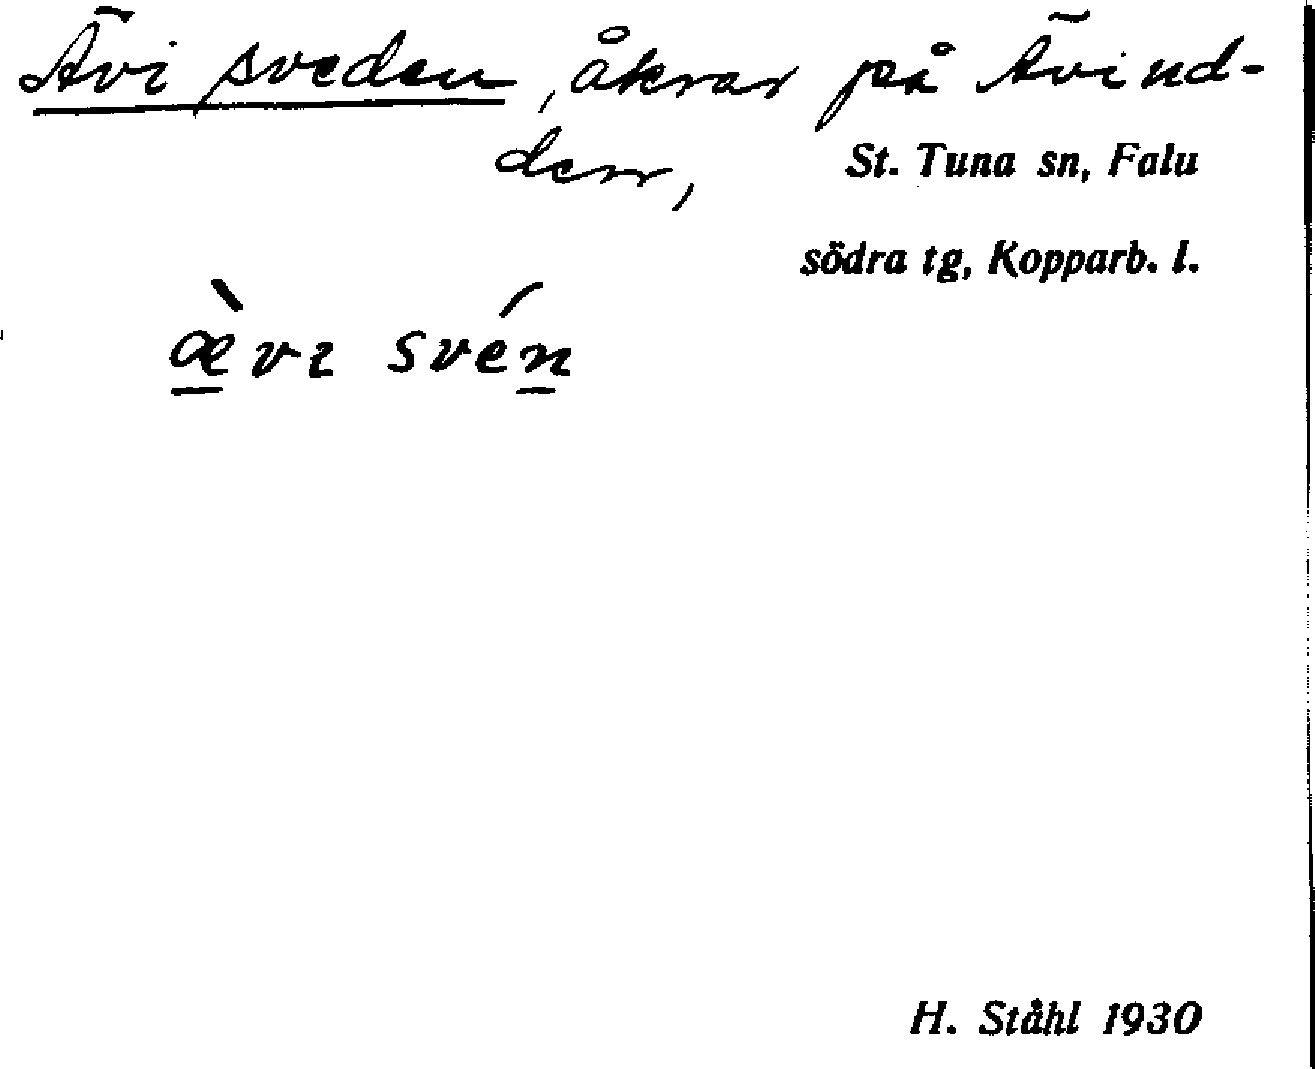 Ävi sveden, åkrar på Ävind-
den,
St. Tuna sn, Falu
södra tg, Kopparb. l.
æ̀vɩ svén
H. Ståhl 1930